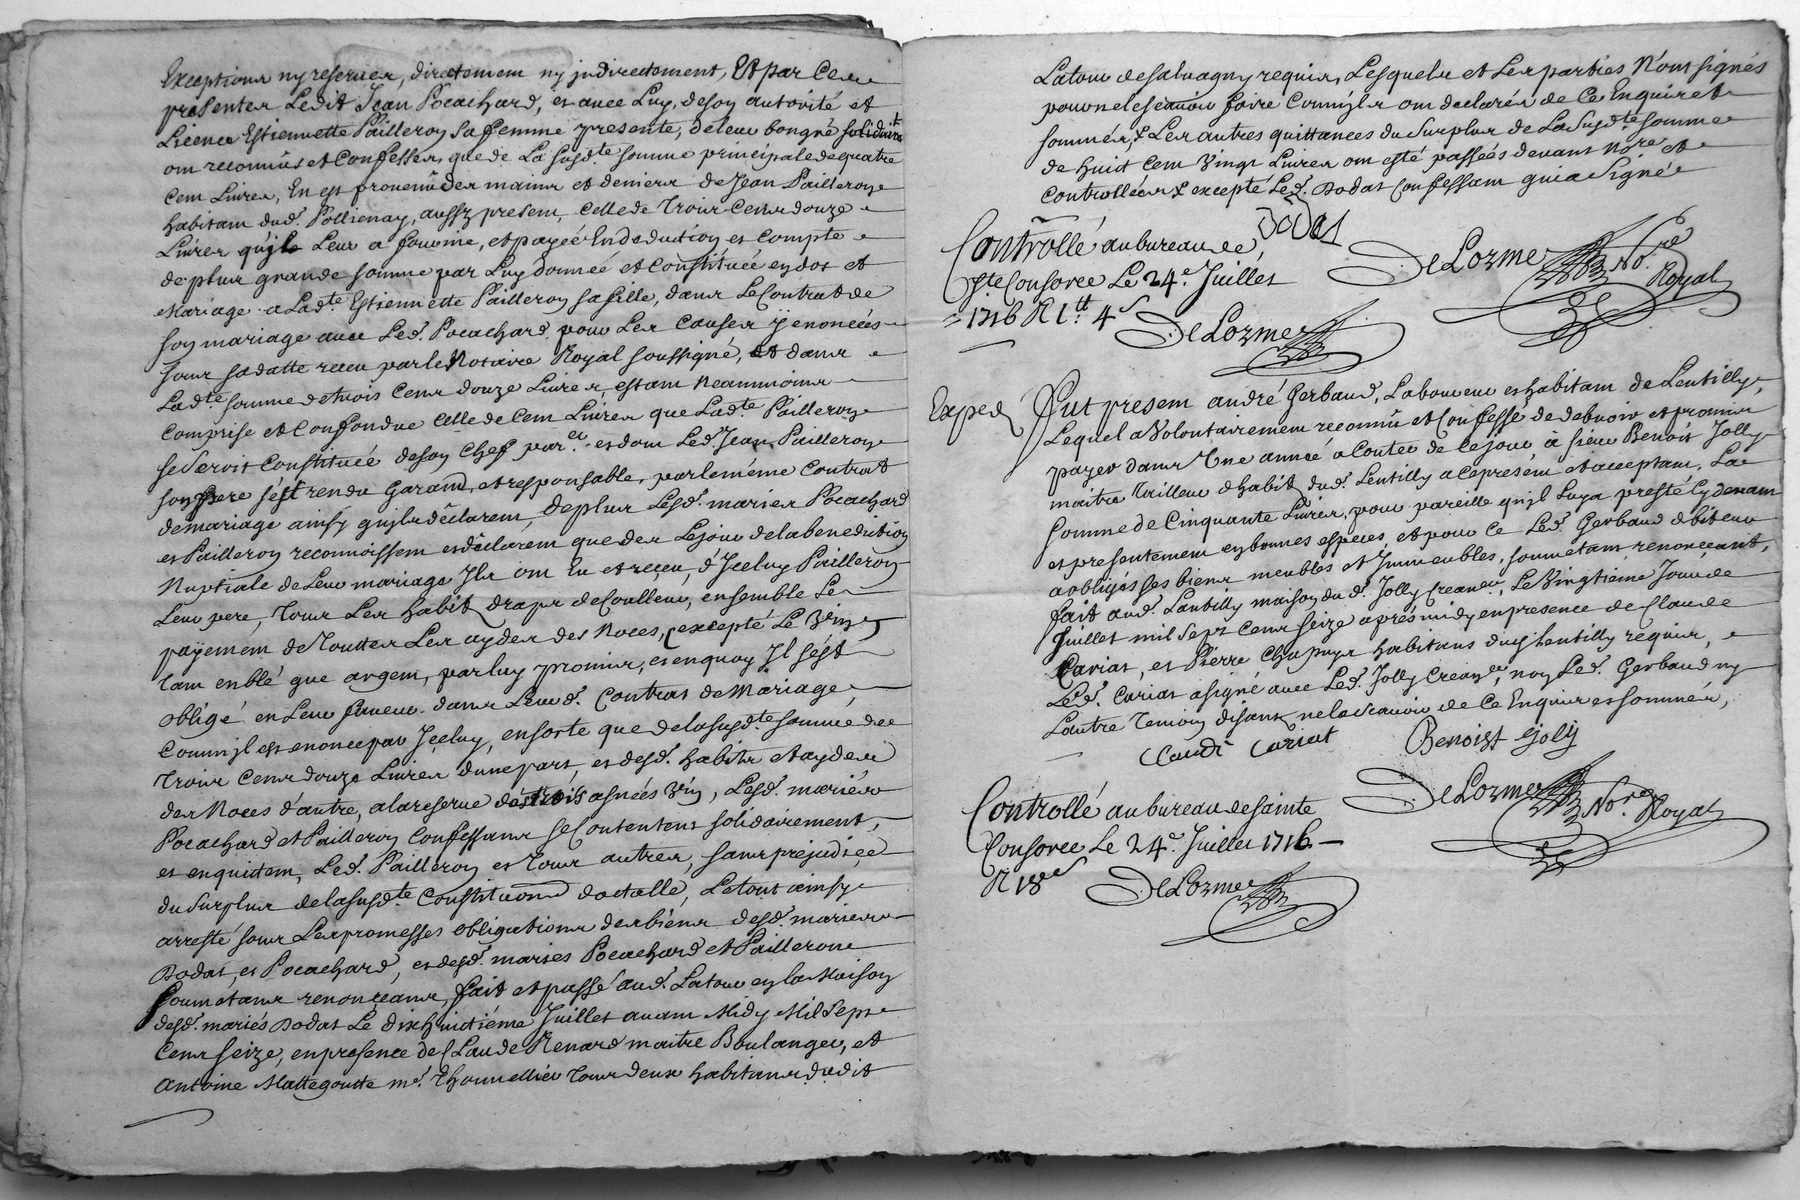 Exceptions ny reserves, directement ny jndirectement, Et par Ces
presentes Ledit Jean Pocachard, et avec Luy, de soy autorité et
Licence Estiennette Pailleroy Sa femme presente, de leur bon gré solidairt
ont reconnûs et Confessés, que de La susd.te somme principale de quatre
Cent Livres, En est provenû des mains et deniers de Jean Pailleroy
habitant dud. Pollienay, aussy present, Celle de Trois Cens douze
Livres qu'jl Leur a fournie, et payée En deduction et Compte
de plus grande somme par Luy donnée et Constituée en dot et
Mariage a Lad.te Estiennette Pailleroy sa fille, dans Le Contrat de
soy mariage avec Led. Pocachard pour Les Causes ÿ enoncées
sous sa datte receu par le Notaire Royal soussigné, et dans
Lad.te somme de trois Cens douze Livres, estant Neanmoins
Comprise et Confondue Celle de Cent Livres que Lad.te Pailleroy
se seroit Constituée de soy Chef par.er et dont Led. Jean Pailleroy
son pere s'est rendu Garand, et responsable, par le même Contrat
de mariage ainsy qu'jls déclarent, de plus Lesd. mariés Pocachard
et Pailleroy reconnoissent et déclarent que dès Le jour de la benediction
Nuptiale de Leur mariage Jls ont Eu et reçeu, d'Jceluy Pailleroy
Leur pere, Tous Les habits draps de Coulleur, ensemble Le
payement de Touttes Les aydes des Noces, excepté Le Vin,
Tant en blé que argent, par luy promis, et en quoy Jl s'est
obligé en Leur faveur dans Leurd. Contrat de Mariage,
Comm'jl est enoncé par Jceluy, en sorte que de la susd.te somme de
Trois Cens douze Livres d'une part, et desd. habits et aydes
des Noces d'autre, a la reserve des trois asnées Vin, Lesd. mariés
Pocachard et Pailleroy Confessans se Contentent solidairement,
et en quittent, Led. Pailleroy et Tous autres, sans prejudice
du Surplus de la susd.te Constitution dotalle, Le tout ainsy
arresté sous Les promesses obligations des biens desd. mariés
Dodat, et Pocachard, et desd. mariés Pocachard et Pailleroy
soumetans renonçeans, fait et passé aud. Latour en la Maison
desd. mariés Dodat Le dixhuictiéme Juillet avant Midy Mil Sept
Cens seize, en presence de Claude Renard maitre Boulanger, et
Antoine Mattegoutte m.e Thonnellier Tous deux habitans dudit
Latour de Salvagny requis, Lesquels et Les parties N'ont signés
pour ne le sçavoir faire Comm'jls ont declarés de Ce Enquis et
sommés, & Les autres quittances du surplus de La Susd.te somme
de huit Cent Vingt Livres ont esté passées devant No.re et
Controllées & excepté Led. Dodat Confessant qui a Signé
Dodat
Controllé au bureau de
S.te Consorce Le 24.e Juillet
1716 R 1.tt 4 s
DeLorme
DeLorme No.re
Royal
Exped
Fut present andré Gerbaud, Laboureur et habitant de Lentilly,
Lequel a Volontairement reconnû et Confessé de debvoir et promis
payer dans Vne année a Conter de Ce jour à sieur Benoist Jolly
maitre Tailleur d'habits dud. Lentilly a Ce present et acceptant, La
somme de Cinquante Livres, pour pareille qu'jl Luy a presté Cy devant
et presentement en bonnes especes, et pour Ce Led. Gerbaud debiteur
a obligés ses biens meubles et Jmmeubles, soumetant, renonceant,
fait aud. Lentilly maison du d. Jolly Creancier, Le Vingtiéme Jour de
Juillet mil Sept Cens seize aprés midy en presence de Claude
Cariat, et Pierre Chapuys habitans dud. Lentilly requis,
Led. Cariat a signé avec Led. Jolly Crean.er, non Led. Gerbaud ny
L'autre Temoin disans ne le sçavoir de Ce Enquis et sommés,
Claude Cariat Benoist Jolly
Controllé au bureau de sainte
Consorce Le 24.e Juillet 1716
R 18 s
DeLorme
DeLorme No.re
Royal